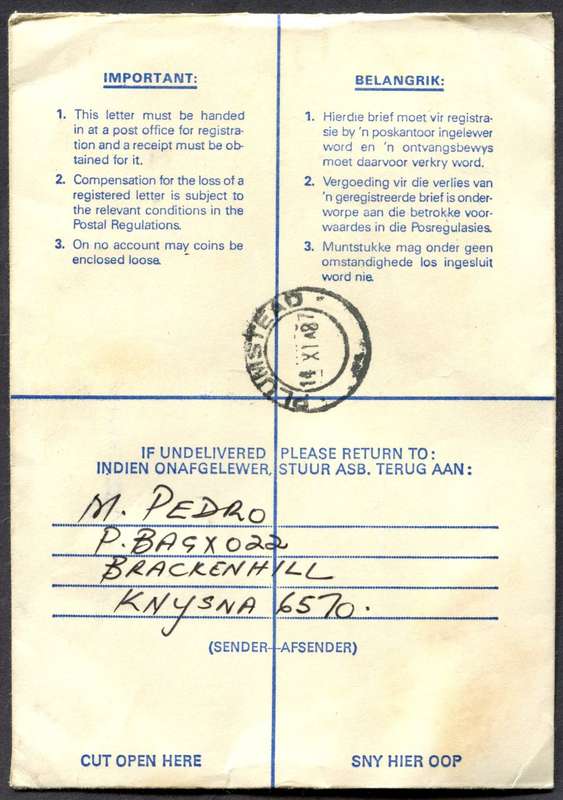 IMPORTANT:
1. This letter must be handed
in at a post office for registra-
tion and a receipt must be ob-
tained for it.
2. Compensation for the loss of a
registered letter is subject to
the relevant conditions in the
Postal Regulations.
3. On no account may coins be
enclosed loose.
BELANGRIK:
1. Hierdie brief moet vir registra-
sie by 'n poskantoor ingelewer
word en 'n ontvangsbewys
moet daarvoor verkry word.
2. Vergoeding vir die verlies van
'n geregistreerde brief is onder-
worpe aan die betrokke voor-
waardes in die Posregulasies.
3. Muntstukke mag onder geen
omstandighede los ingesluit
word nie.
PLUMSTEAD
14 XI 87
IF UNDELIVERED PLEASE RETURN TO:
INDIEN ONAFGELEWER, STUUR ASB. TERUG AAN:
M. PEDRO
P. BAG X022
BRACKENHILL
KNYSNA 6570.
(SENDER–AFSENDER)
CUT OPEN HERE
SNY HIER OOP